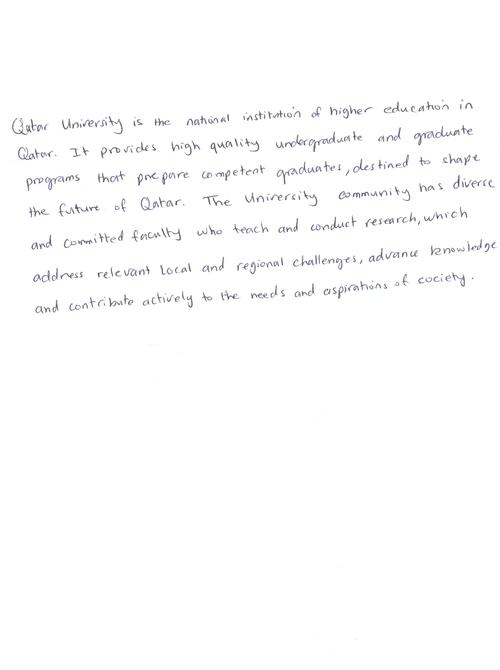 Qatar University is the national institution of higher education in
Qatar. It provides high quality undergraduate and graduate
programs that prepare competent graduates, destined to shape
the future of Qatar. The University community has diverse
and committed faculty who teach and conduct research, which
address relevant Local and regional challenges, advance knowledge
and contribute actively to the needs and aspirations of cociety.